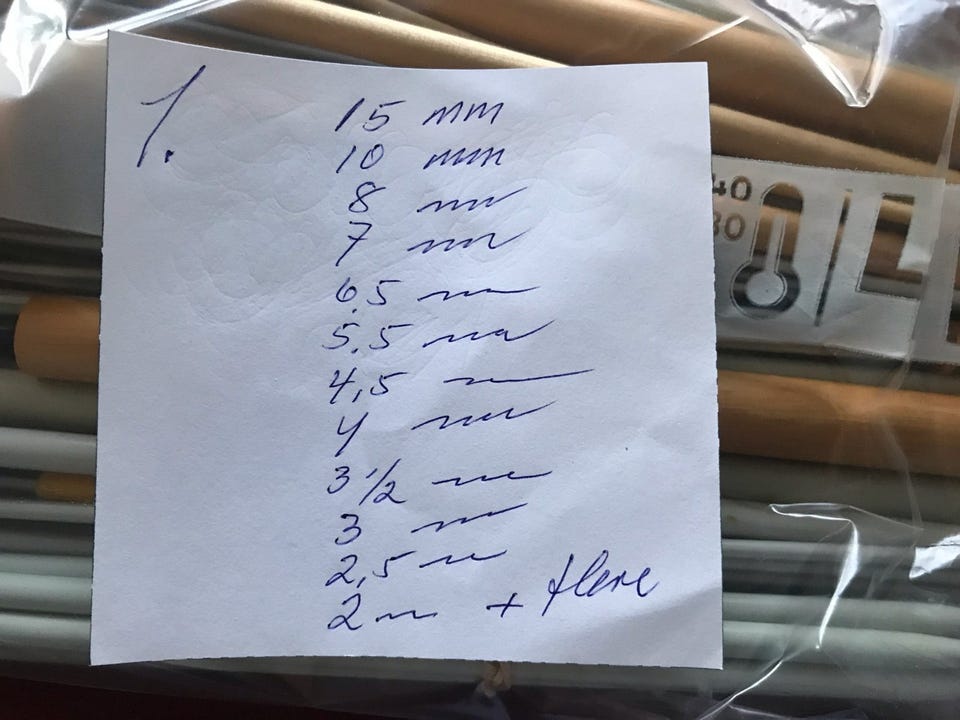 1.
15 mm
10 mm
8 mm
7 mm
6,5 mm
5,5 mm
4,5 mm
4 mm
3 1/2 mm
3 mm
2,5 mm
2 mm + flere
40
30